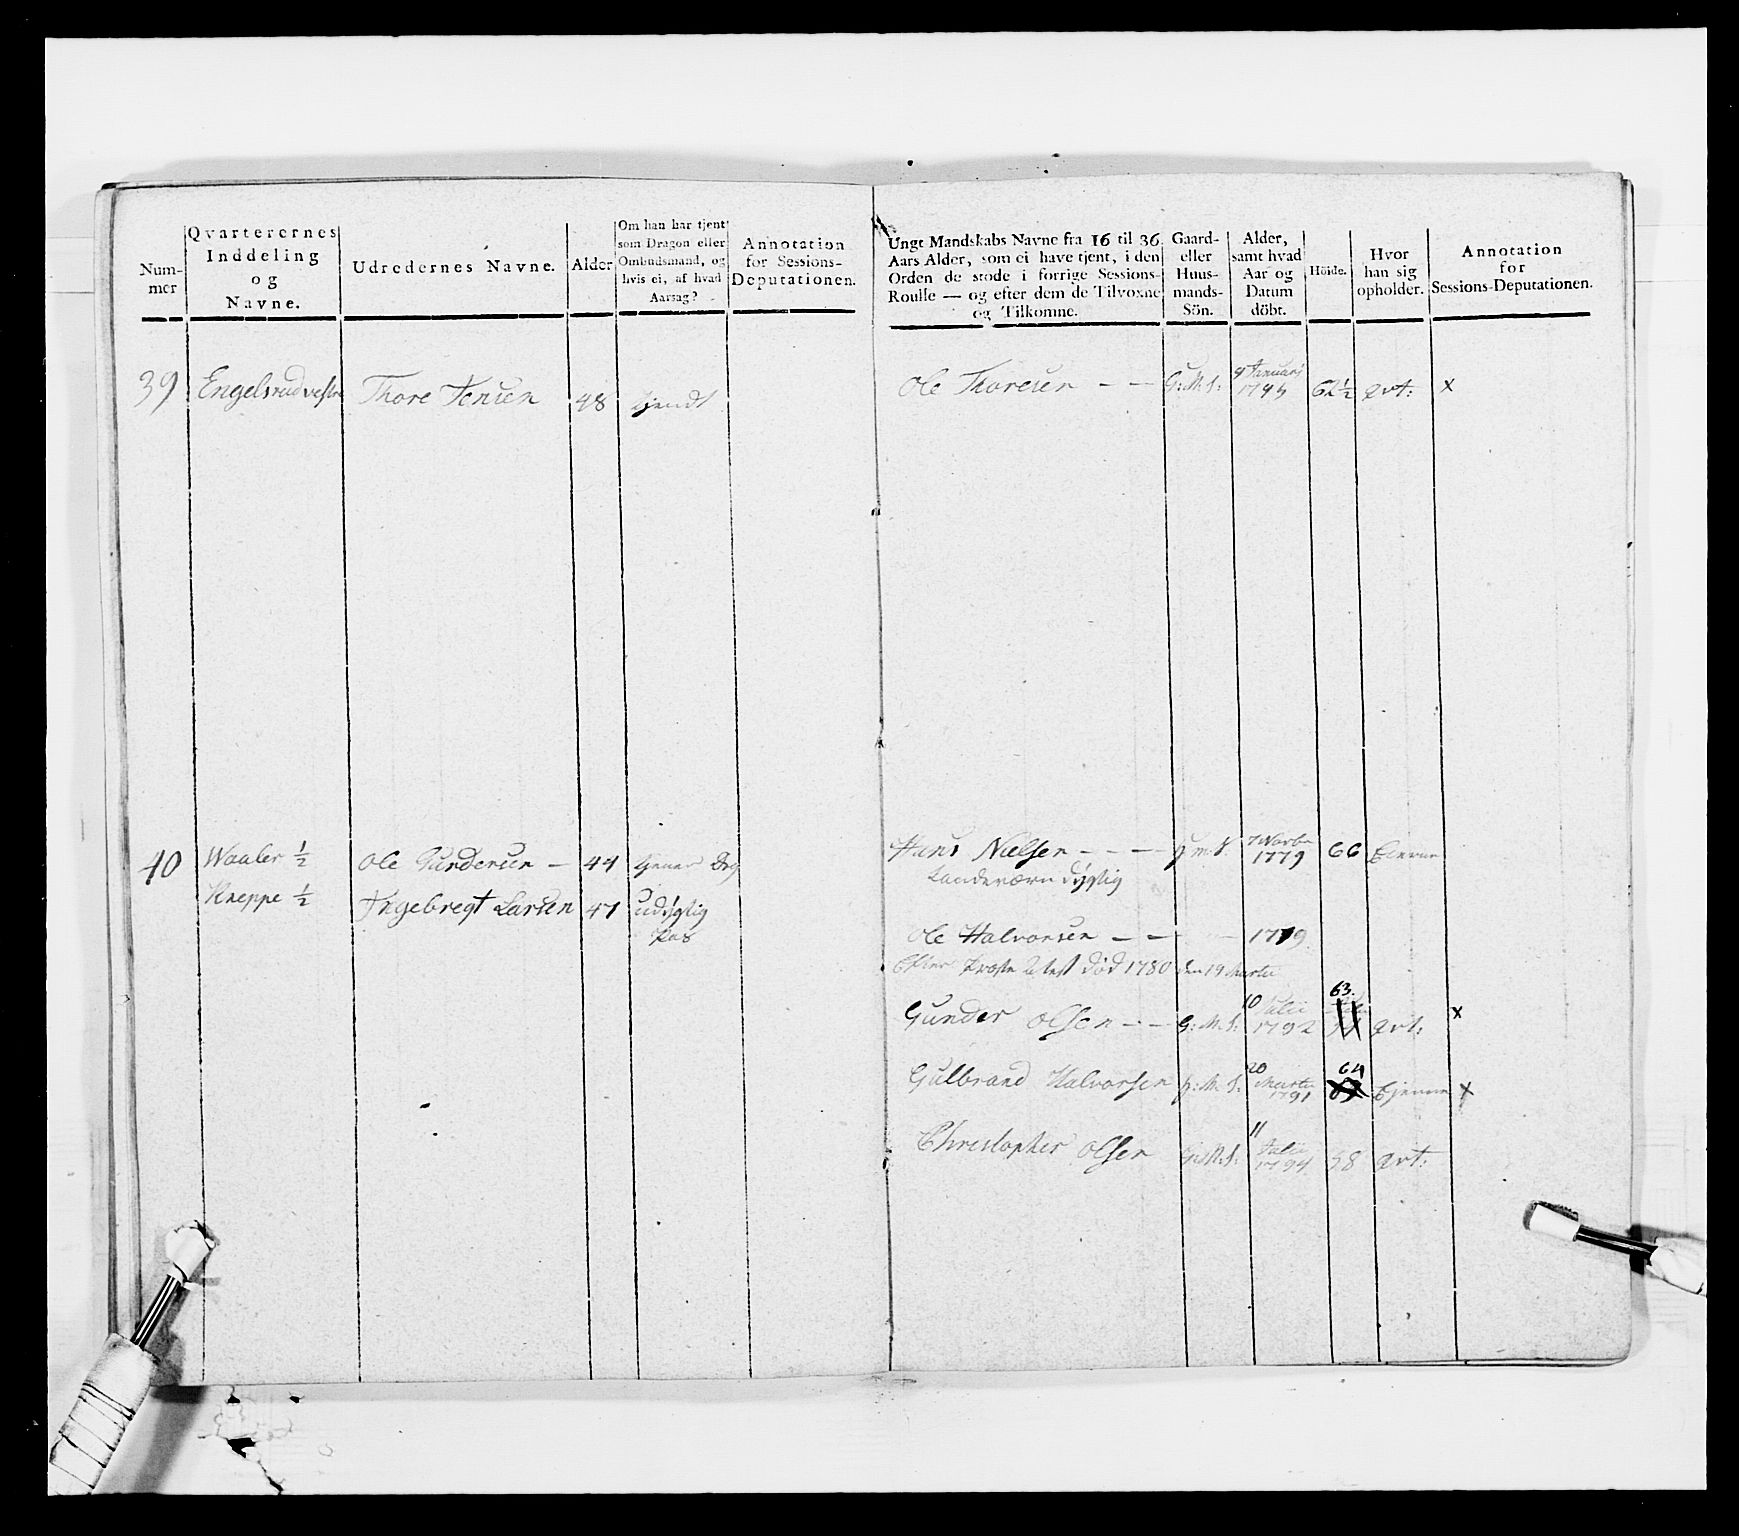 Num-
mer
Qvarterernes
Inddeling
og
Navne.
Udredernes Navne.
Alder
Om han har tjent
som Dragon eller
Ombudsmand, og
hvis ei, af hvad
Aarsag?
Annotation
for Sessions-
Deputationen.
39 Engelsrud vestre Thore Jensen 48 tjendt
40 Waaler ½ Ole Gundersen — 44
Kneppe ½ Ingebregt Larsen 47 udygtig
Pas
Ungt Mandskabs Navne fra 16 til 36
Aars Alder, som ei have tjent, i den
Orden de stode i forrige Sessions-
Roulle — og efter dem de Tilvoxne
og Tilkomne.
Gaard-
eller
Huus-
mands-
Sön.
Alder,
samt hvad
Aar og
Datum
döbt.
Höide.
Hvor
han sig
opholder.
Annotation
for
Sessions-Deputationen.
Ole Thoresen — — G:M:S: 9 Januari
1795 62½ qvt: x
Hans Nielsen - - - G.M.S. 7 Novbr
1779 66
Landeværn dygtig
Ole Halvorsen — — 1779
Efter Præste Attest död 1780 den 19 Martii
Gunder Olsen - - G:M:S: 10 Julii
1792 63. qvt: x
Gulbrand Halvorsen G:M:S: 20
Martii
1791 64 x
Christopher Olsen G:M:S: 11
Julii
1794 58 qvt: